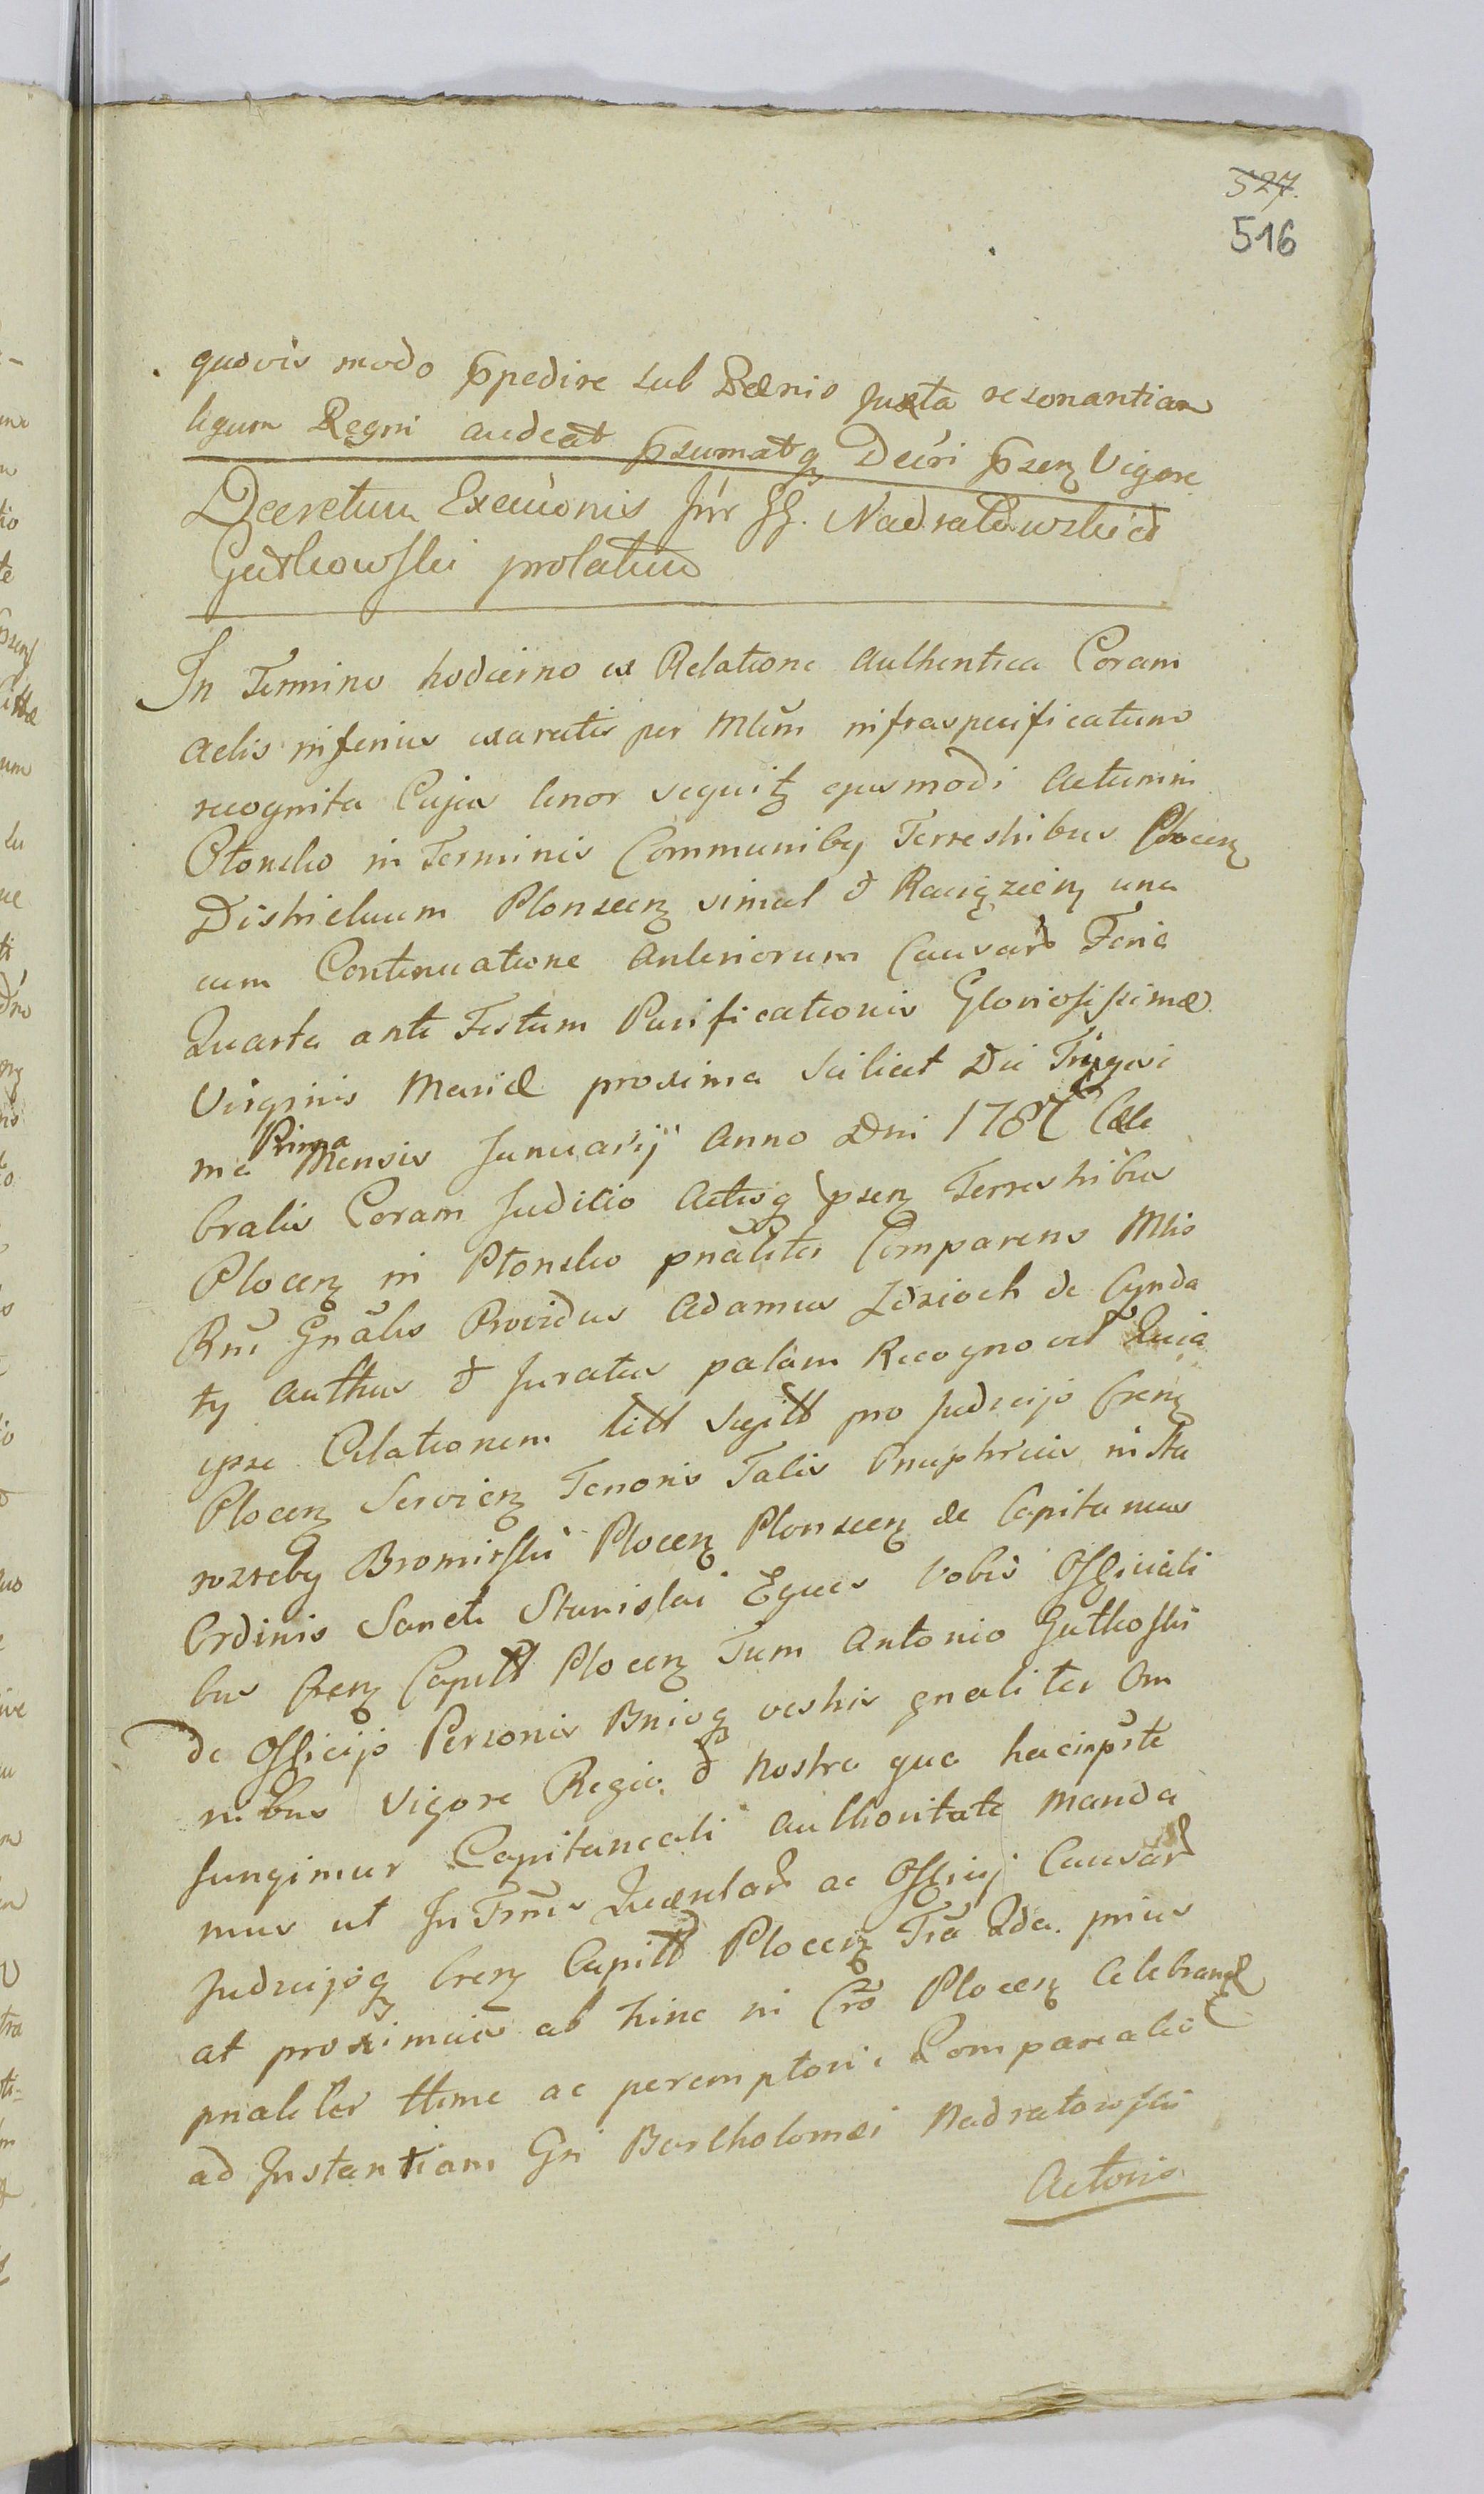 527.
516
quovis modo ꝑpedire sub Pœnis Juxta resonantiam
legum Regni audeat ꝑsumatq Decri ꝑsenȝ Vigore
Decretum Execuonis Inr GG. Nadratowski et
Gutkowski prolatum
In Termino hodierno ex Relatione Authentica Coram
Actis inferius exaratis per Mlem infraspecificatum
recognita Cujus tenor sequitȝ ejusmodi Actum in
Płonsko in Terminis Communiby Terrestribus Plocenȝ
Districtuum Plonscenȝ simul & Raciązienȝ una
cum Continuatione Anteriorum Causar Feria
Quarta ante Festum Purificationis Gloriosissimæ
Virginis Mariæ proxima scilicet Die Trigesi
ma Prima Mensis Januarij Anno Dni 1787 Cele
bratis Coram Judicio Actisq ꝑsenȝ Terrestribus
Plocenȝ in Płonsko pnaliter Comparens Mlis
Rni Gnalis Providus Adamus Zdzioch de Cynda
ty Authus & Juratus palam Recognovit Quia
ipse Citationem litt Sigitt pro Judicijo Crenȝ
Plocenȝ Servienȝ Tenoris Talis Onuphrius in Sta
rozreby Bromirski Plocenȝ Plonscenȝ de Capitaneus
Ordinis Sancti Stanislai Eques Vobis Officiati
bus Crenȝ Capitt Plocenȝ Tum Antonio Gutkoski
de Officijo Personis Bnisq vestris gnaliter Om
nibus Vigore Regia & Nostra qua hacinpste
fungimur Capitaneali Authoritate Manda
mus ut In Trnis Querelar ac Officij Causar
Judicijsq Crenȝ Capitt Plocenȝ Fra 2da. prius
at proximius ab hinc in Cro Plocenȝ Celebrand
pnaliter ttime ac peremptorie Compareatis
ad Instantiam Gn Bartholomei Nadratowski
Actoris